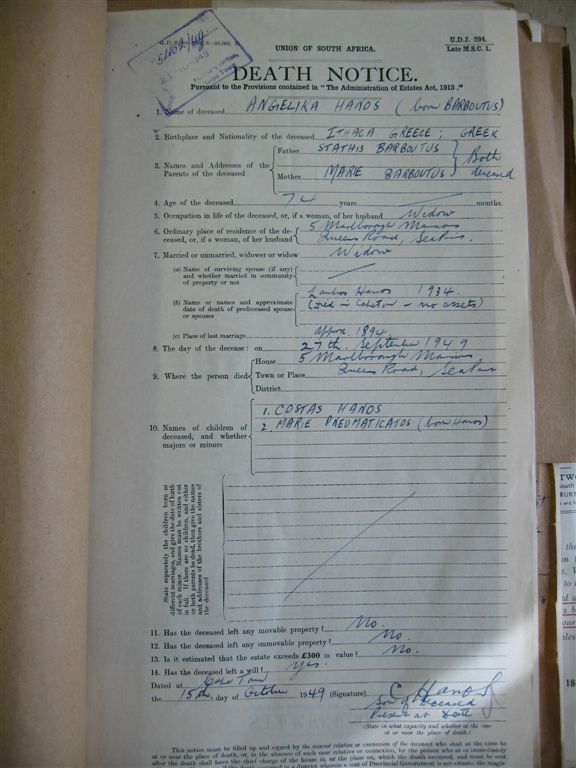 U.D.J. 294.
Late M.S.C. 1.
UNION OF SOUTH AFRICA.
DEATH NOTICE.
Pursuant to the Provisions contained in "The Administration of Estates Act, 1913."
1. Name of deceased ANGELIKA HANOS (born BARBOUTUS)
2. Birthplace and Nationality of the deceased ITHACA GREECE; GREEK
3. Names and Addresses of the Parents of the deceased
Father STATHIS BARBOUTUS
Mother MARIE BARBOUTUS
Both deceased
4. Age of the deceased 74 years months.
5. Occupation in life of the deceased, or, if a woman, of her husband Widow
6. Ordinary place of residence of the de-
ceased, or, if a woman, of her husband
5 Marlborough Mansions
Queens Road, Sea Point.
7. Married or unmarried, widower or widow Widow
(a) Name of surviving spouse (if any)
and whether married in community
of property or not
(b) Name or names and approximate
date of death of predeceased spouse
or spouses
Hanos 1934.
(died in – no assets)
(c) Place of last marriage approx. 1894
8. The day of the decease: on 27th September 1949
9. Where the person died
House 5 Marlborough Mansions
Town or Place Queens Road, Sea Point
District
10. Names of children of
deceased, and whether
majors or minors
1. COSTAS HANOS
2. MARIE PNEUMATICATOS (born Hanos)
State separately the children born of
different marriages, and give the date of birth
of each minor. Names must be written out
in full. If there are no children, and either
or both parents be dead, then give the names
and addresses of the brothers and sisters of
the deceased
11. Has the deceased left any movable property? No.
12. Has the deceased left any immovable property? No.
13. Is it estimated that the estate exceeds £300 in value? No.
14. Has the deceased left a will? Yes.
Dated at Cape Town
the 15th day of October 1949 (Signature). C Hanos
Son of Deceased
Present at Death
(State in what capacity and whether at the
or near the place of death.)
This notice must be filled up and signed by the nearest relative or connexion of the deceased who shall at the time be
at or near the place of death, or, in the absence of such near relative or connexion, by the person who at or immediately
after the death shall have the chief charge of the house in, or the place on, which the death occurred, and must be sent